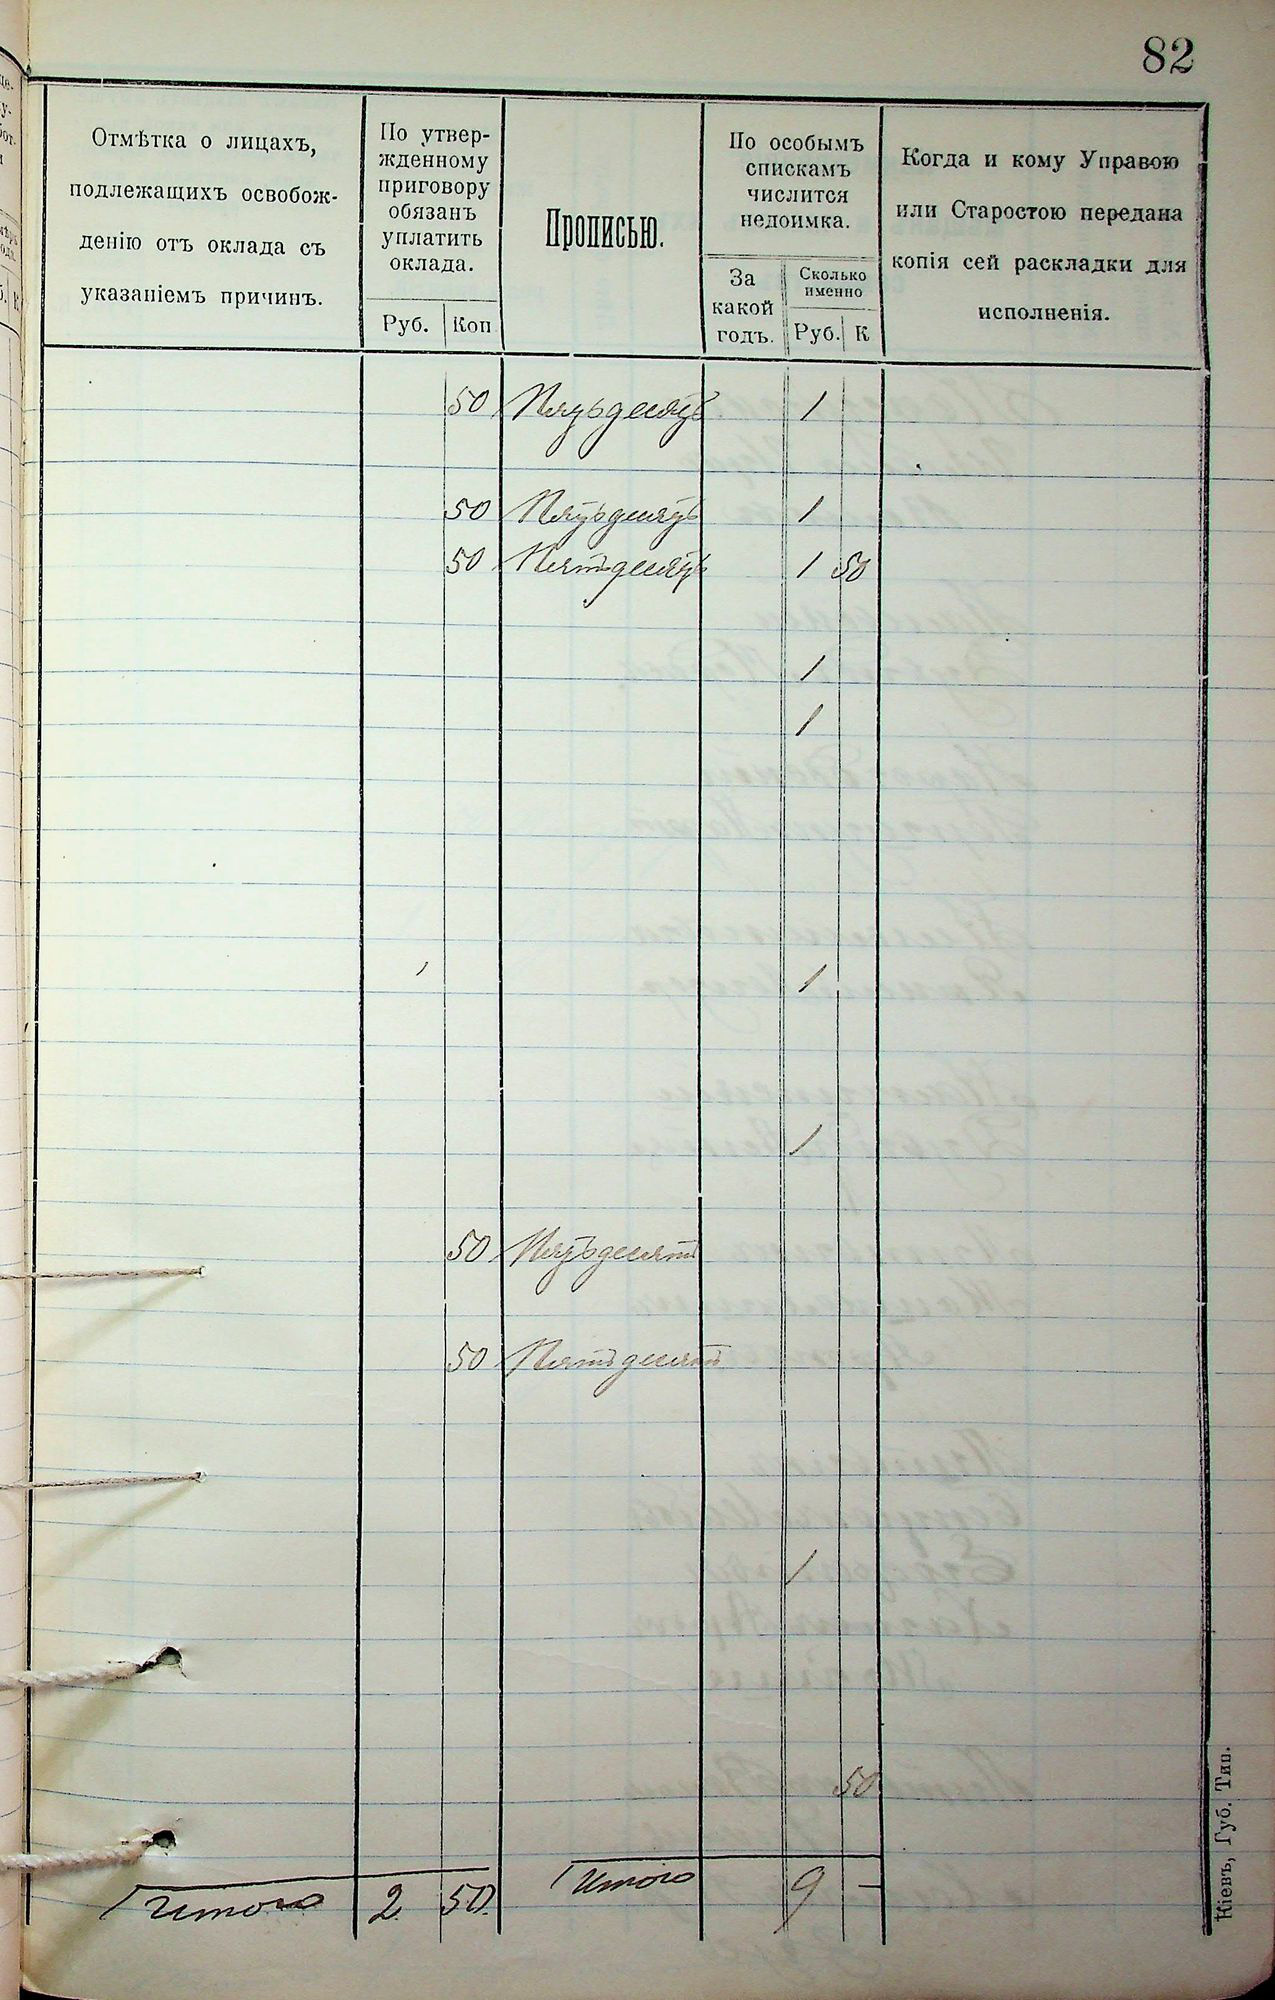 82
Отмѣтка о лицахъ,
подлежащихъ освобож-
денію отъ оклада съ
указаніемъ причинъ.
По утвер-
жденному
приговору
обязанъ
уплатить
оклада.
Руб. Коп
Прописью.
По особымъ
спискамъ
числится
недоимка.
За
какой
годъ.
Сколько
именно
Руб. К
Когда и кому Управою
или Старостою передана
копія сей раскладки для
исполненія.
50 Пятьдесятъ 1
50 Пятьдесятъ 1
50 Пятьдесятъ 1 50
1
1
1
1
50 Пятьдесят
50 Пятьдесят
1
50
Итого 2 50 Итого 9 —
Кіевъ, Губ. Тип.